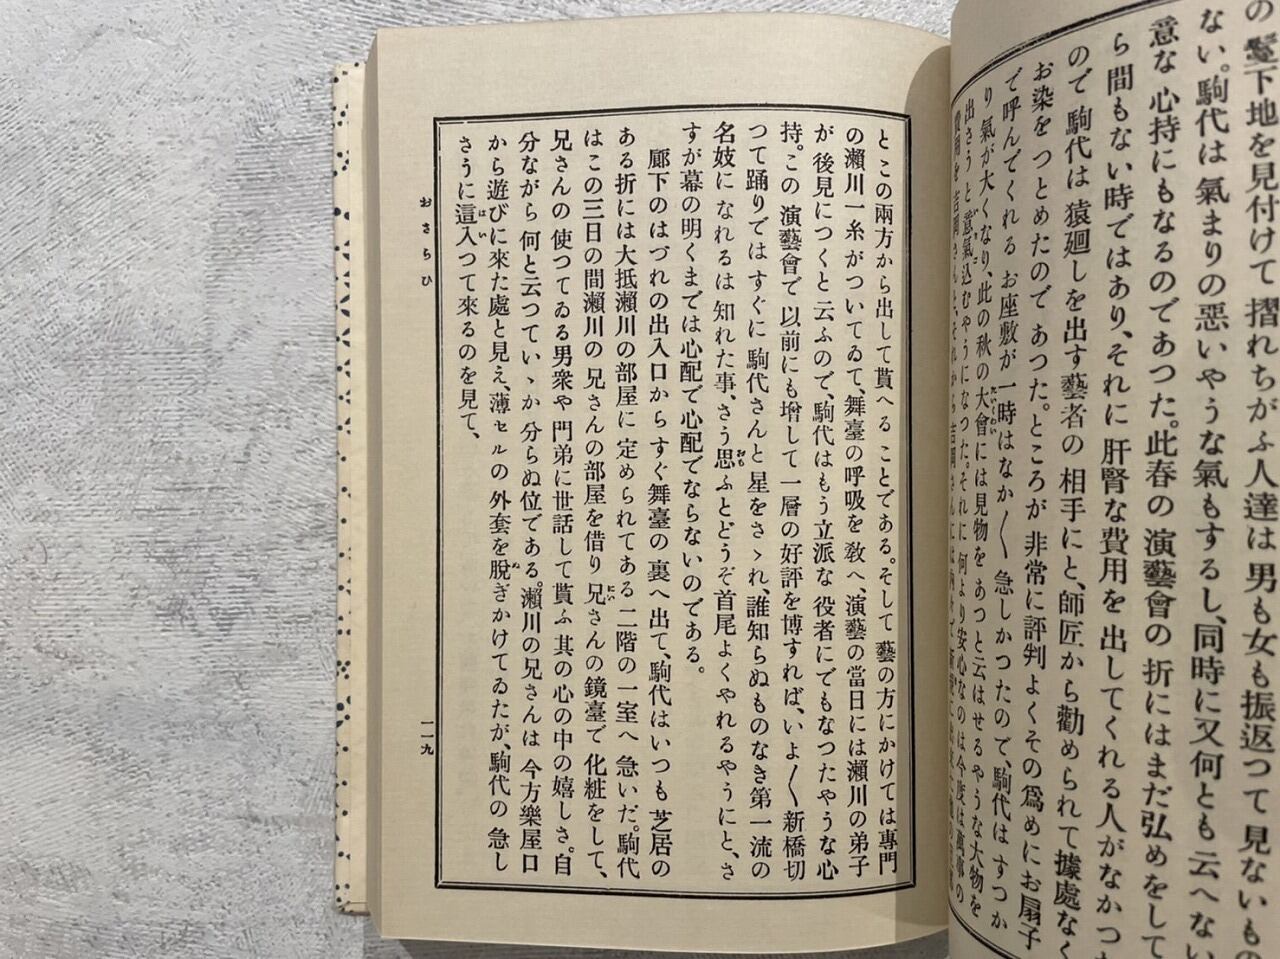 の鬘下地を見付けて摺れちがふ人達は男も女も振返つて見ないもの
ない。駒代は氣まりの悪いやうな氣もするし、同時に又何とも云へない
意な心持にもなるのであつた。此春の演藝會の折にはまだ弘めをして
ら間もない時ではあり、それに肝腎な費用を出してくれる人がなかつ
ので駒代は猿廻しを出す藝者の相手にと、師匠から勸められて據處なく
お染をつとめたのであつた。ところが非常に評判よくその爲めにお扇子
で呼んでくれるお座敷が一時はなか〱急しかつたので、駒代はすつか
り氣が大くなり、此の秋の大會には見物をあつと云はせるやうな大物を
出さうと意氣込むやうになつた。それに何より安心なのは今度は萬事の
とこの兩方から出して貰へることである。そして藝の方にかけては專門
の瀨川一糸がついてゐて、舞臺の呼吸を敎へ、演藝の當日には瀨川の弟子
が後見につくと云ふので、駒代はもう立派な役者にでもなつたやうな心
持。この演藝會で以前にも增して一層の好評を博すれば、いよ〱新橋切
つて踊りではすぐに駒代さんと星をさゝれ、誰知らぬものなき第一流の
名妓になれるは知れた事、さう思ふとどうぞ首尾よくやれるやうにと、さ
すが幕の明くまでは心配で心配でならないのである。
廊下のはづれの出入口からすぐ舞臺の裏へ出て、駒代はいつも芝居の
ある折には大抵瀨川の部屋に定められてある二階の一室へ急いだ。駒代
はこの三日の間瀨川の兄さんの部屋を借り兄さんの鏡臺で化粧をして、
兄さんの使つてゐる男衆や門弟に世話して貰ふ其の心の中の嬉しさ。自
分ながら何と云つていゝか分らぬ位である。瀨川の兄さんは今方樂屋口
から遊びに來た處と見え、薄セルの外套を脫ぎかけてゐたが、駒代の急し
さうに這入つて來るのを見て、
おさらひ
一一九